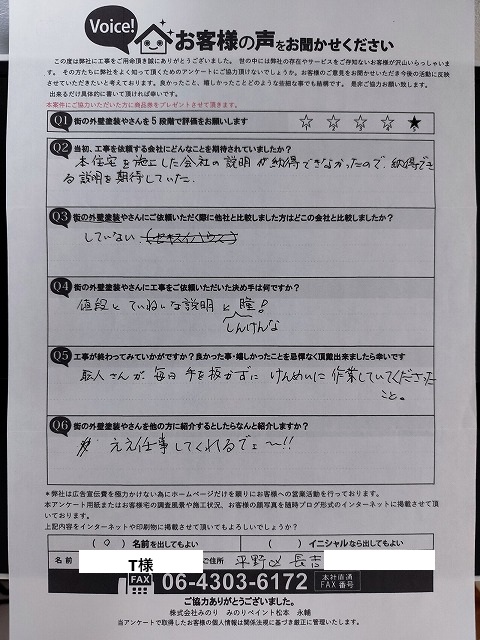 Voice!
お客様の声をお聞かせください
この度は弊社に工事をご用命頂き誠にありがとうございました。世の中には弊社の存在やサービスをご存知ないお客様が沢山いらっしゃいま
す。その方たちに弊社をよく知って頂くためのアンケートにご協力頂けないでしょうか。お客様のご意見をお聞かせいただき今後の活動に反映
させていただきたいと考えております。良かったこと、嬉しかったことどのような些細な事でも結構です。是非ご協力お願い致します。
出来るだけ具体的に書いて頂ければ幸いです。
本案件にご協力いただいた方に商品券をプレゼントさせて頂きます。
Q1 街の外壁塗装やさんを5段階で評価をお願いします ☆ ☆ ☆ ☆ ★
Q2 当初、工事を依頼する会社にどんなことを期待されていましたか?
本住宅を施工した会社の説明が納得できなかったので、納得でき
る説明を期待していた。
Q3 街の外壁塗装やさんにご依頼いただく際に他社と比較しました方はどこの会社と比較しましたか?
していない (セキスイハウス)
Q4 街の外壁塗装やさんに工事をご依頼いただいた決め手は何ですか?
値段とていねいな説明と瞳!
しんけんな
Q5 工事が終わってみていかがですか?良かった事・嬉しかったことを忌憚なく頂戴出来ましたら幸いです
職人さんが毎日手を抜かずにけんめいに作業していてくださった
こと。
Q6 街の外壁塗装やさんを他の方に紹介するとしたらなんと紹介しますか?
ええ仕事してくれるでェ〜!!
*弊社は広告宣伝費を極力かけない為にホームページだけを頼りにお客様への営業活動を行っております。
本アンケート用紙またはお客様宅の調査風景や施工状況、お客様の顔写真を随時ブログ形式のインターネットに掲載させて頂
いております。
上記内容をインターネットや印刷物に掲載させて頂いてもよろしいでしょうか?
( ○ ) 名前を出してもよい ( ) イニシャルなら出してもよい
名前 T様 ご住所 平野区 長吉
FAX 06-4303-6172 本社直通 FAX番号
ご協力ありがとうございました。
株式会社みのり みのりペイント松本 永輔
当アンケートで取得したお客様の個人情報は関係法規に基づき厳正に管理いたします。